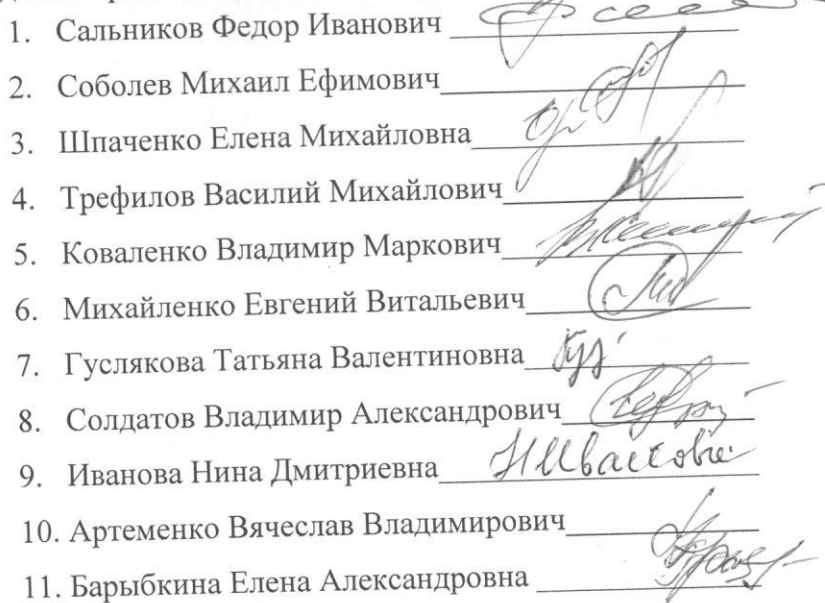 1. Сальников Федор Иванович
2. Соболев Михаил Ефимович
3. Шпаченко Елена Михайловна
4. Трефилов Василий Михайлович
5. Коваленко Владимир Маркович
6. Михайленко Евгений Витальевич
7. Гуслякова Татьяна Валентиновна
8. Солдатов Владимир Александрович
9. Иванова Нина Дмитриевна
10. Артеменко Вячеслав Владимирович
11. Барыбкина Елена Александровна